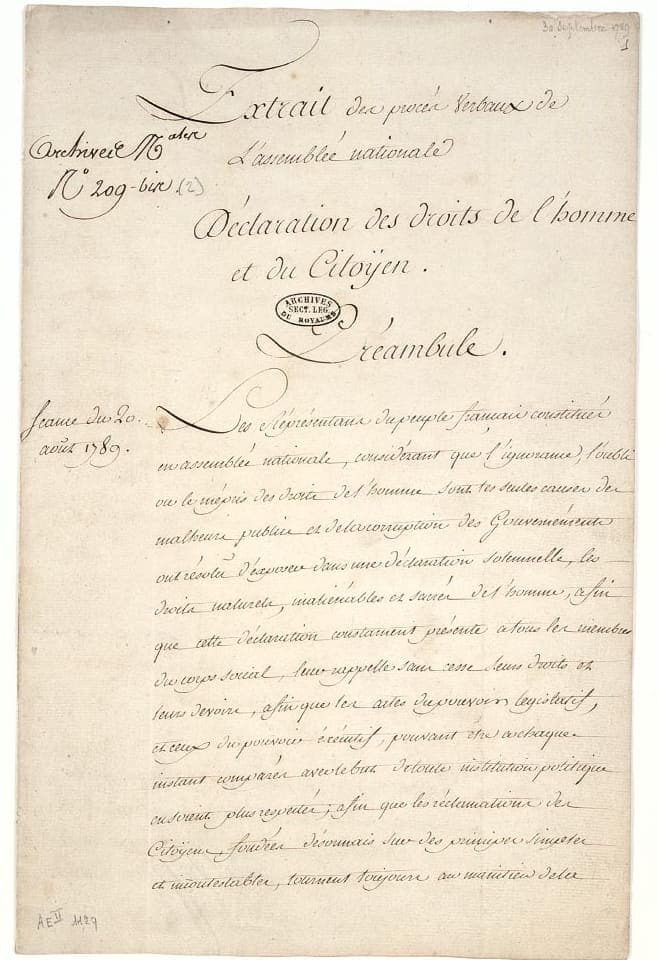 30 Septembre 1789
1
Extrait des procès Verbaux de
L'assemblée nationale
archives
N° 209-bis (2)
Déclaration des droits de l'homme
et du Citoÿen.
ARCHIVES
SECT. LEG.
DU ROYAUME
Préambule.
Seance du 20.
août 1789.
Les Réprésentans du peuple francais constitués
en assemblée nationale, considérant que l'ignorance, l'oubli
ou le mépris des droits de l'homme sont les seules causes des
malheurs publics et de la corruption des Gouvernéments
ont résolu d'exposer dans une déclaration solemnelle, les
droits naturels, inaliénables et sacrés de l'homme, afin
que cette déclaration constament présente a tous les membres
du corps social, leur rappelle sans cesse leurs droits et
leurs devoirs, afin que les actes du pouvoir legislatif,
et ceux du pouvoir éxécutif, pouvant être a chaque
instant comparés avec le but de toute institution politique
en soient plus respectés; afin que les réclamations des
Citoyens, fondées désormais sur des principes simples
et incontestables, tournent toujours au maintien de la
AE II 1129